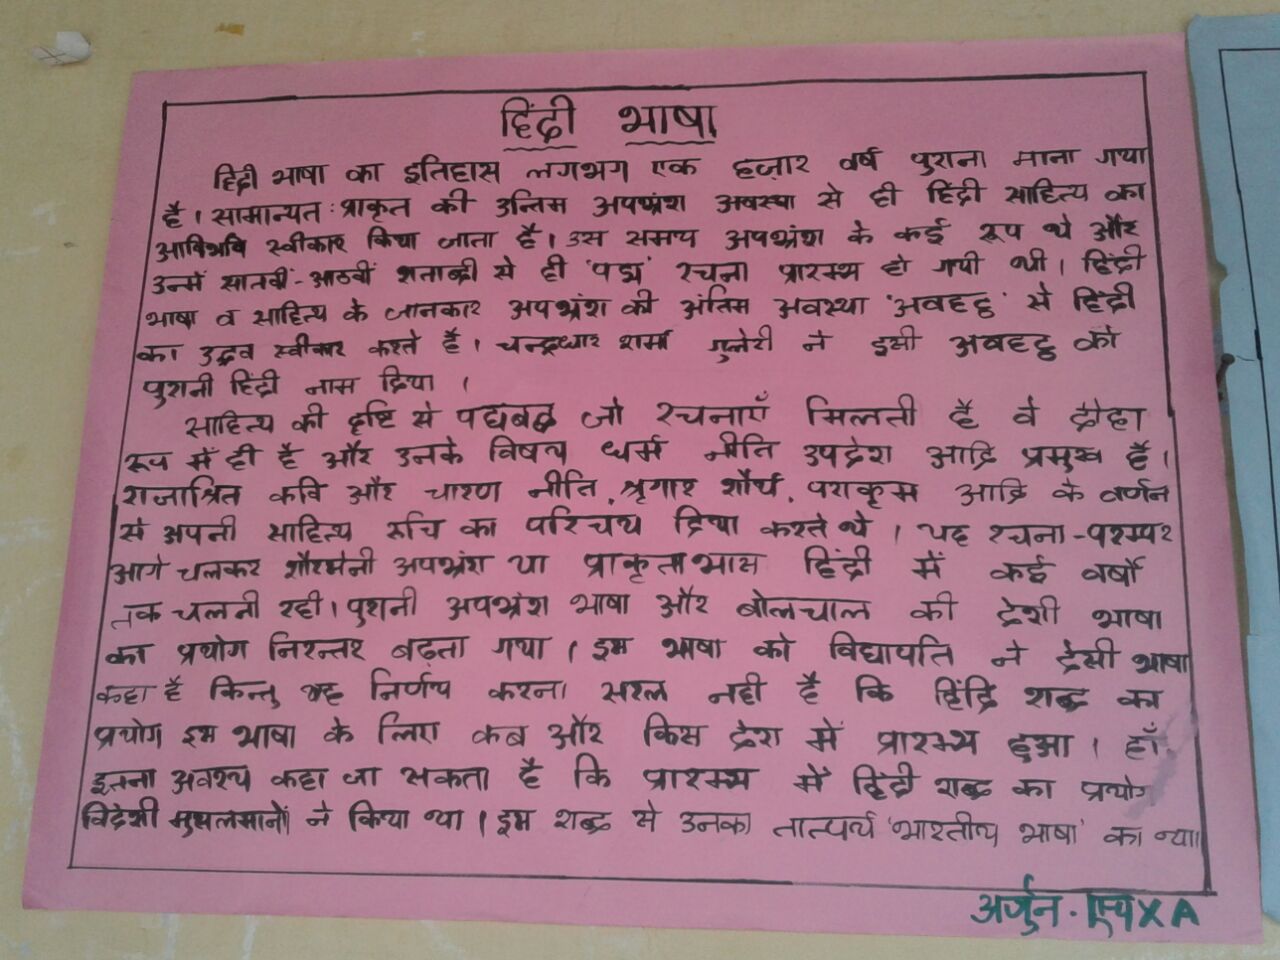 हिंदी भाषा
हिंदी भाषा का इतिहास लगभग एक हज़ार वर्ष पुराना माना गया
है। सामान्यतः प्राकृत की अन्तिम अपभ्रंश अवस्था से ही हिंदी साहित्य का
आविर्भाव स्वीकार किया जाता है। उस समय अपभ्रंश के कई रूप थे और
उनमें सातवीं-आठवीं शताब्दी से ही 'पद्म' रचना प्रारम्भ हो गयी थी। हिंदी
भाषा व साहित्य के जानकार अपभ्रंश की अंतिम अवस्था 'अवहट्ठ' से हिंदी
का उद्भव स्वीकार करते है। चन्द्रधार शर्मा गुलेरी ने इसी अवहट्ठ को
पुरानी हिंदी नाम दिया।
साहित्य की दृष्टि से पद्यबद्ध जो रचनाएँ मिलती है वे दोहा
रूप में ही है और उनके विषय धर्म नीति उपदेश आदि प्रमुख है।
राजाश्रित कवि और चारण नीति, श्रृगार शौर्य, पराक्रम आदि के वर्णन
से अपनी साहित्य रुचि का परिचय दिया करते थे। यह रचना-परम्पर
आगे चलकर शौरसेनी अपभ्रंश या प्राकृताभास हिंदी में कई वर्षो
तक चलती रही। पुरानी अपभ्रंश भाषा और बोलचाल की देशी भाषा
का प्रयोग निरन्तर बढ़ता गया। इस भाषा को विद्यापति ने देसी भाषा
कहा है किन्तु यह निर्णय करना सरल नही है कि हिंदि शब्द का
प्रयोग इस भाषा के लिए कब और किस देश में प्रारम्भ हुआ। हाँ,
इतना अवश्य कहा जा सकता है कि प्रारम्भ में हिंदी शब्द का प्रयोग
विदेशी मुसलमानों ने किया था। इस शब्द से उनका तात्पर्य 'भारतीय भाषा' का था।
अर्जुन. X A